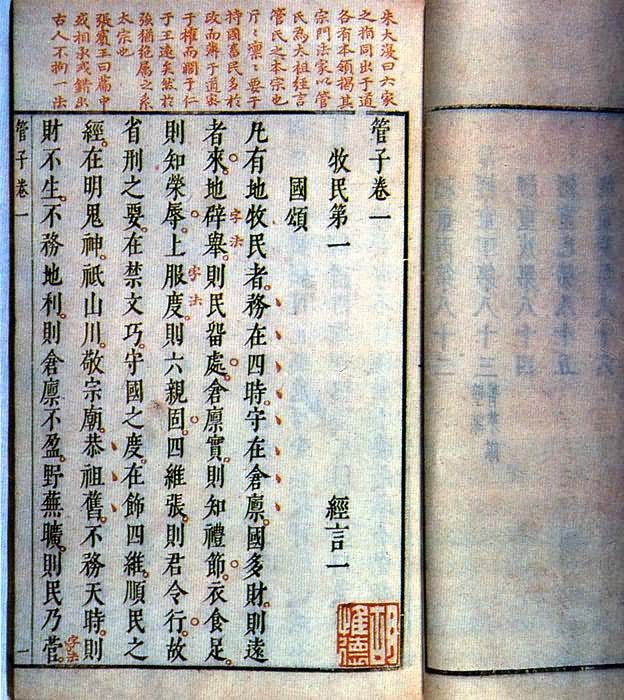 朱大復曰六家
之指同出于道
各有本領揭其
宗門法家以管
氏為太祖經言
管氏之本宗也
斤〻凜〻要于
持國畜民多於
政而薄于道密
于權而闊于仁
于王遠矣然於
強猶絶属之系
太宗也
張賓王曰篇中
或相承或錯出
古人不拘一法
管子卷一
牧民第一 經言一
國頌
凡有地牧民者。務在四時。守在倉廩。國多財。則遠
者來。地辟舉。則民畱處。倉廩實。則知禮節。衣食足。
字法
則知榮辱。上服度。則六親固。四維張。則君令行。故
字法
省刑之要。在禁文巧。守國之度。在飾四維。順民之
經。在明鬼神。祇山川。敬宗廟。恭祖舊。不務天時。則
財不生。不務地利。則倉廩不盈。野蕪曠。則民乃菅。
字法
管子卷一
一